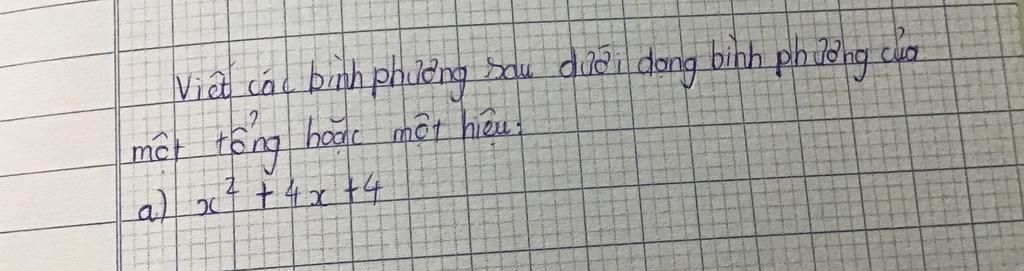 Viết các bình phương sau dưới dạng bình phương của
một tổng hoặc một hiệu:
a) x² + 4x + 4